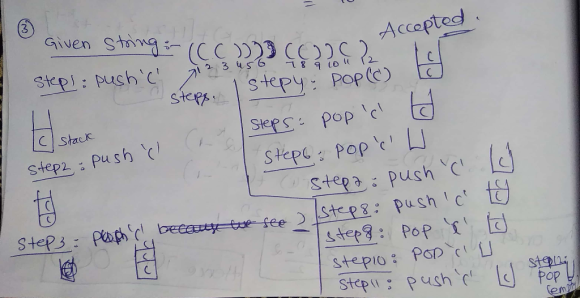 ③
Given String:- ((( ))) (( )) ( )
Accepted.
1 2 3 4 5 6 7 8 9 10 11 12
steps.
Step1: push '('
( stack
Step2: push '('
(
(
Step3: push '(' because we see )
(
(
(
Step4: POP(()
(
(
Step5: POP '('
(
Step6: POP '('
Step7: push '('
(
Step8: push '('
(
(
Step9: POP '('
(
Step10: POP '('
Step11: push '('
(
Step12:
POP
(empty